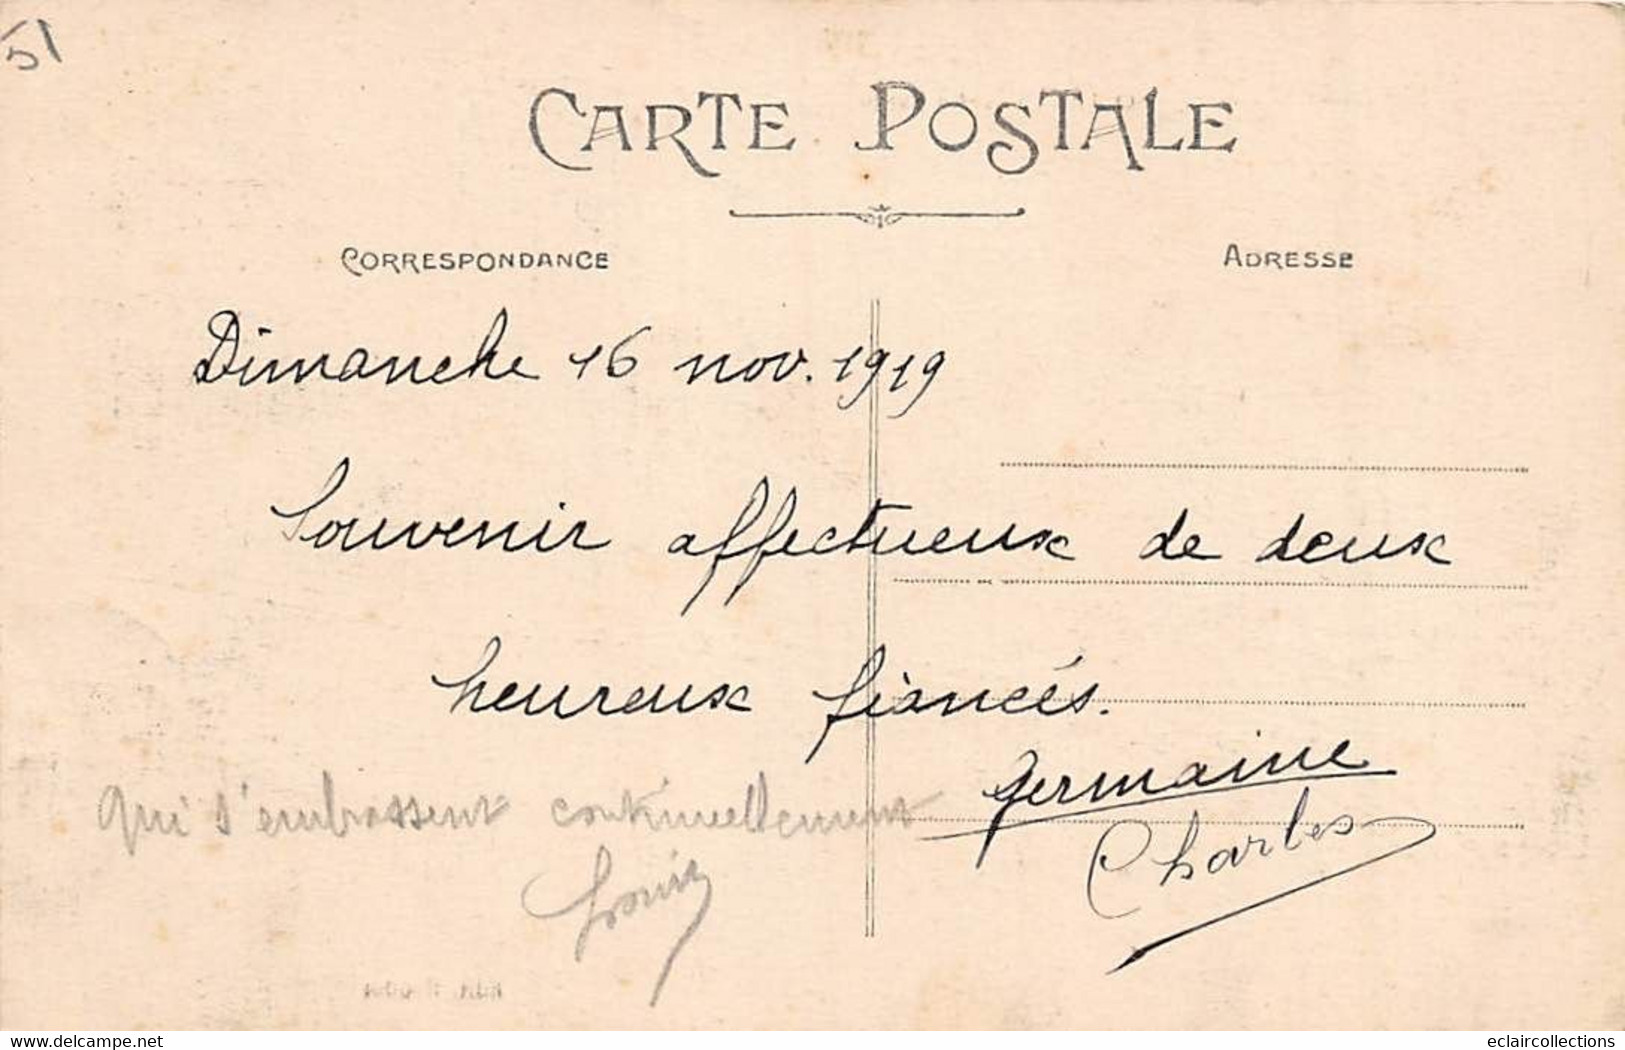 51
CARTE POSTALE
CORRESPONDANCE
ADRESSE
Dimanche 16 nov. 1919
Souvenir affectueux de deux
heureux fiancés.
Germaine
qui s'embrassent continuellement
Charles
Louis
www.delcampe.net
eclaircollections